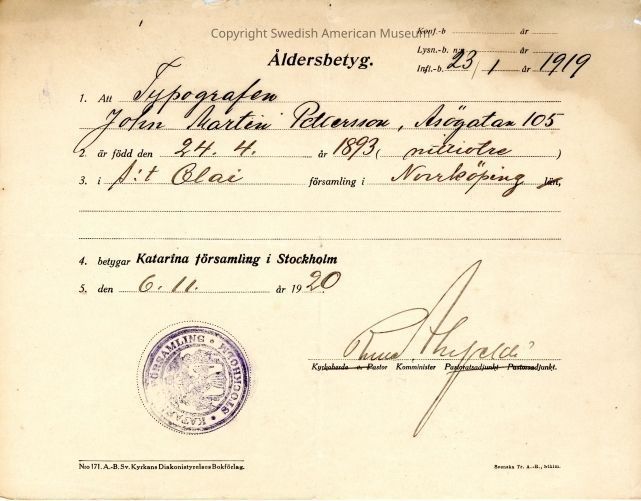 Copyright Swedish American Museum
Konf.-b år
Lysn.-b. n:o år
Infl.-b. 23/1 år 1919
Åldersbetyg.
1. Att Typografen
John Martin Pettersson, Åsögatan 105
2. är född den 24. 4. år 1893 ( nittiotre )
3. i S:t Olai församling i Norrköping län,
4. betygar Katarina församling i Stockholm
5. den 6. 11. år 1920
KATARINA FÖRSAMLING • STOCKHOLM •
Kyrkoherde o. Pastor Komminister Pastoratsadjunkt Pastorsadjunkt.
N:o 171. A.-B. Sv. Kyrkans Diakonistyrelses Bokförlag.
Svenska Tr. A.-B., Sthlm.